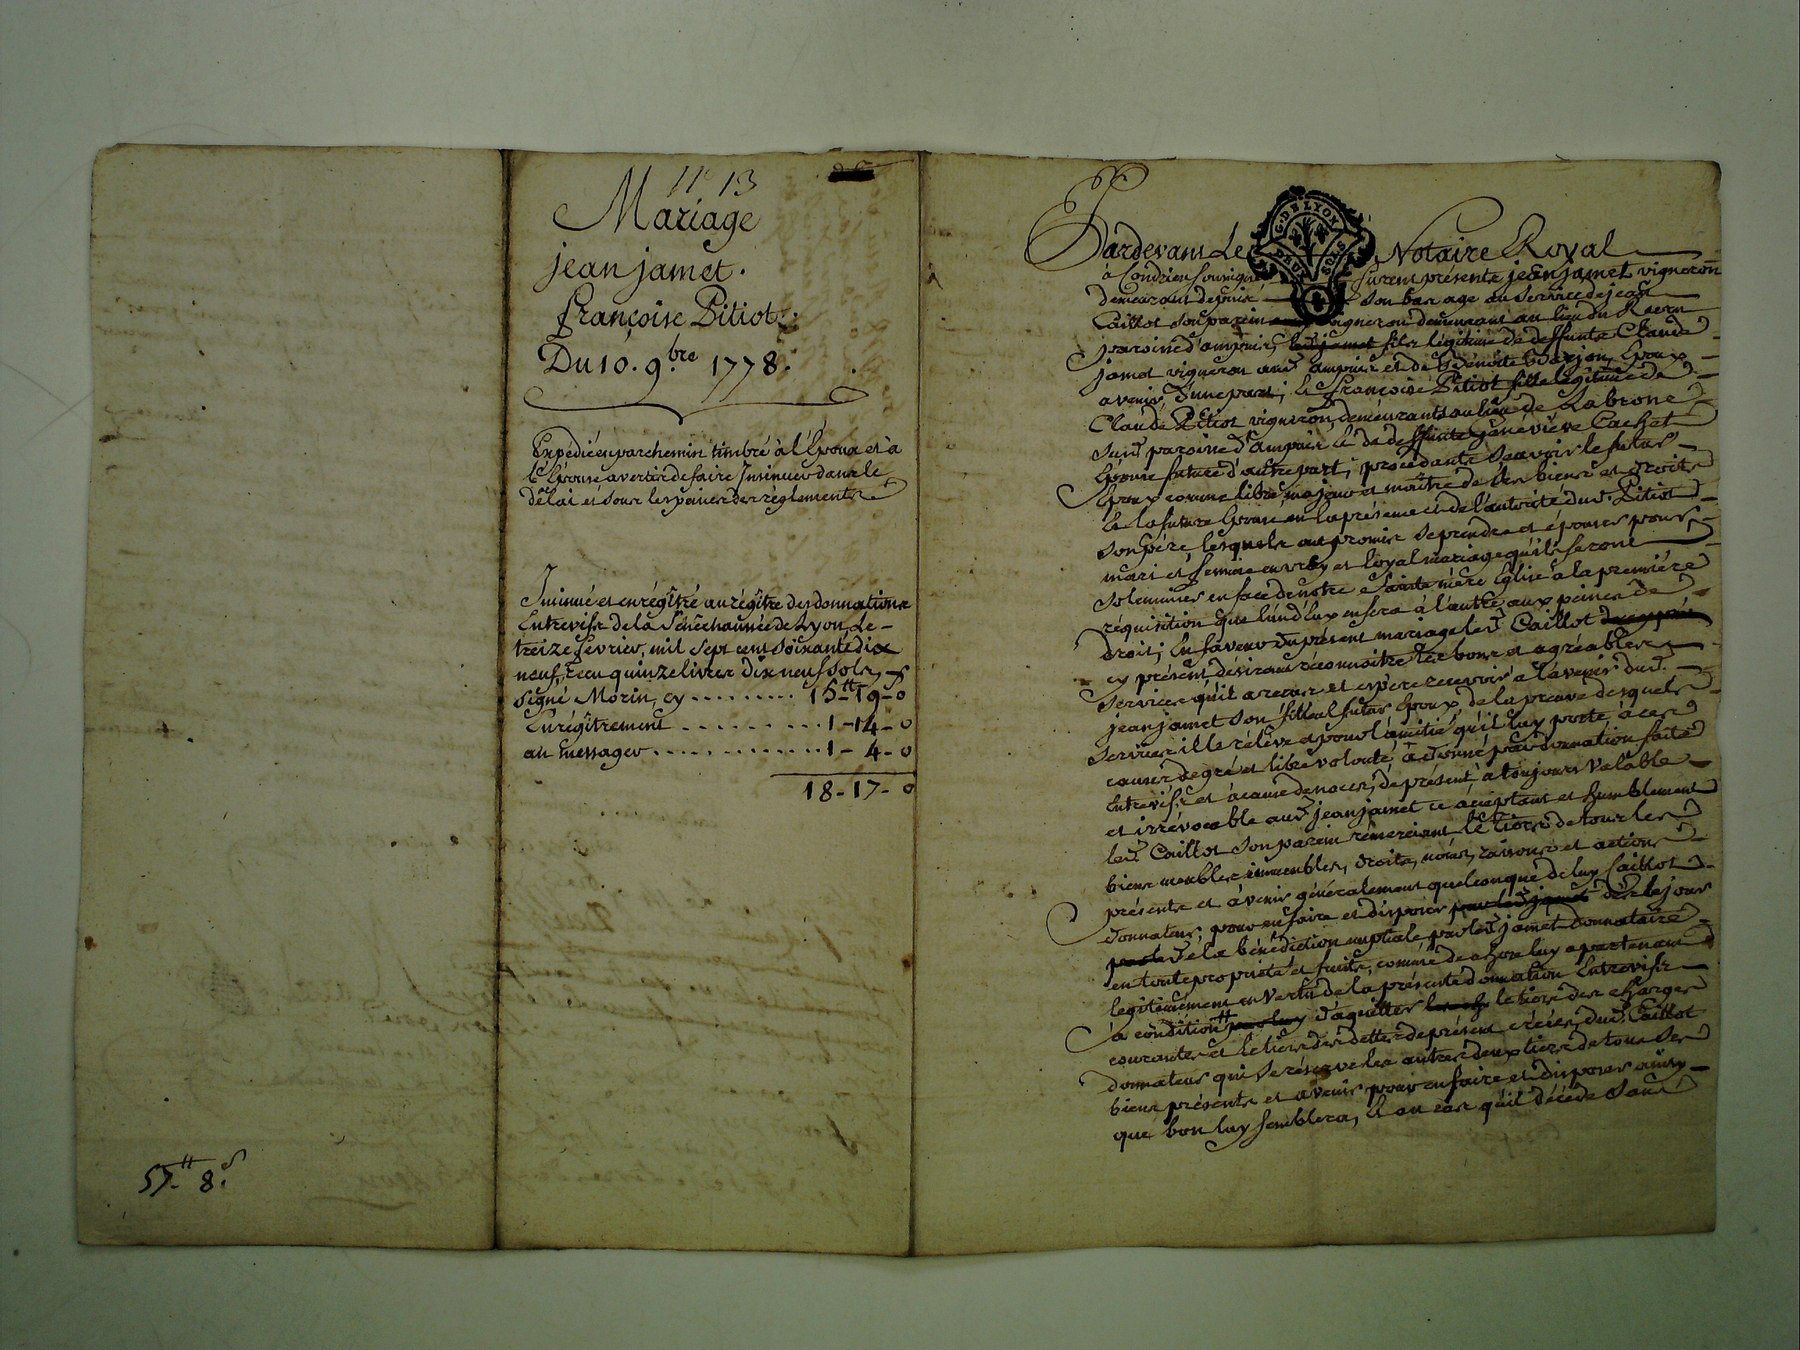 n° 13
Mariage
jean jamet.
françoise Pitiot.
Du 10. 9.bre 1778.
Expédié en parchemin timbré à l'Epoux et à
l'Epouse avertis de faire Insinuer dans le
délai et sous les peines des règlements
Insinué et enrégîtré au régître des donnations
Entrevifs de la Sénéchaussée de Lyon, Le
treize fevrier, mil sept cent soixante dix
neuf, reçu quinze livres dix neuf sols,
signé Morin, cy ......... 15tt-19-0
Enrégîtrement ......... 1-14-0
au messager ............ 1-4-0
18-17-0
57.tt 8.s
G. DE LYON
DEUX SOLS
Pardevant Le Notaire Royal
à Condrieu soussigné furent présents jean jamet vigneron
demeurant depuis son bas age au service de jean
Caillot son parein vigneron demeurant au lieu du
paroisse d'ampuis, fils légitime de deffunts Claude
jamet vigneron aud. ampuis et de Benoite Epoux
avenir d'une part; Et françoise Pitiot fille légitime de
Claude Pitiot vigneron, demeurants au lieu de
sus.d paroisse d'ampuis Et de deffunte Geneviève Cachet
Epouse future d'autre part; procédants sçavoir le futur
Epoux comme libre, majeur et maître de ses biens et droits
Et la future Epouse en la présence et de l'autorité dud. Pitiot
son père, lesquels ont promis se prendre et épouser pour
mari et femme en vray et loyal mariage qu'ils feront
solemniser en face de notre Sainte mère Eglise à la première
réquisition que l'un d'Eux en fera à l'autre, aux peines de
droit; En faveur du présent mariage led. Caillot
cy présent désirant réconnoitre les bons et agréables
services qu'il a reçus et espère recevoir à l'avenir dud.
jean jamet son filleul futur Epoux, de la preuve desquels
services il le rélève et pour l'amitié qu'il luy porte, à ces
causes de gré et libre volonté, a donné par donnation faite
Entrevifs et à cause de noces, de présent, à toujours valable
et irrévocable aud. jean jamet ce acceptant et humblement
led. Caillot son parein rémerciant le tiers de tous les
biens meubles, immeubles, droits, noms, raisons et actions
présents et à venir généralement quelconque de luy Caillot
donnateur, pour en faire et disposer dès le jour
de la bénédiction nuptiale par led. jamet donnataire
en toute propriété et fruits, comme de chose luy apartenant
légitimement en vertu de la présente donnation Entrevifs
à condition d'aquitter le tiers des charges
courantes et le tiers des dettes de présent créées, dud. Caillot
donnateur qui se réserve les autres deux tiers de tous ses
biens présents et avenir pour en faire et disposer ainsy
que bon luy semblera, Et au cas qu'il décède sans